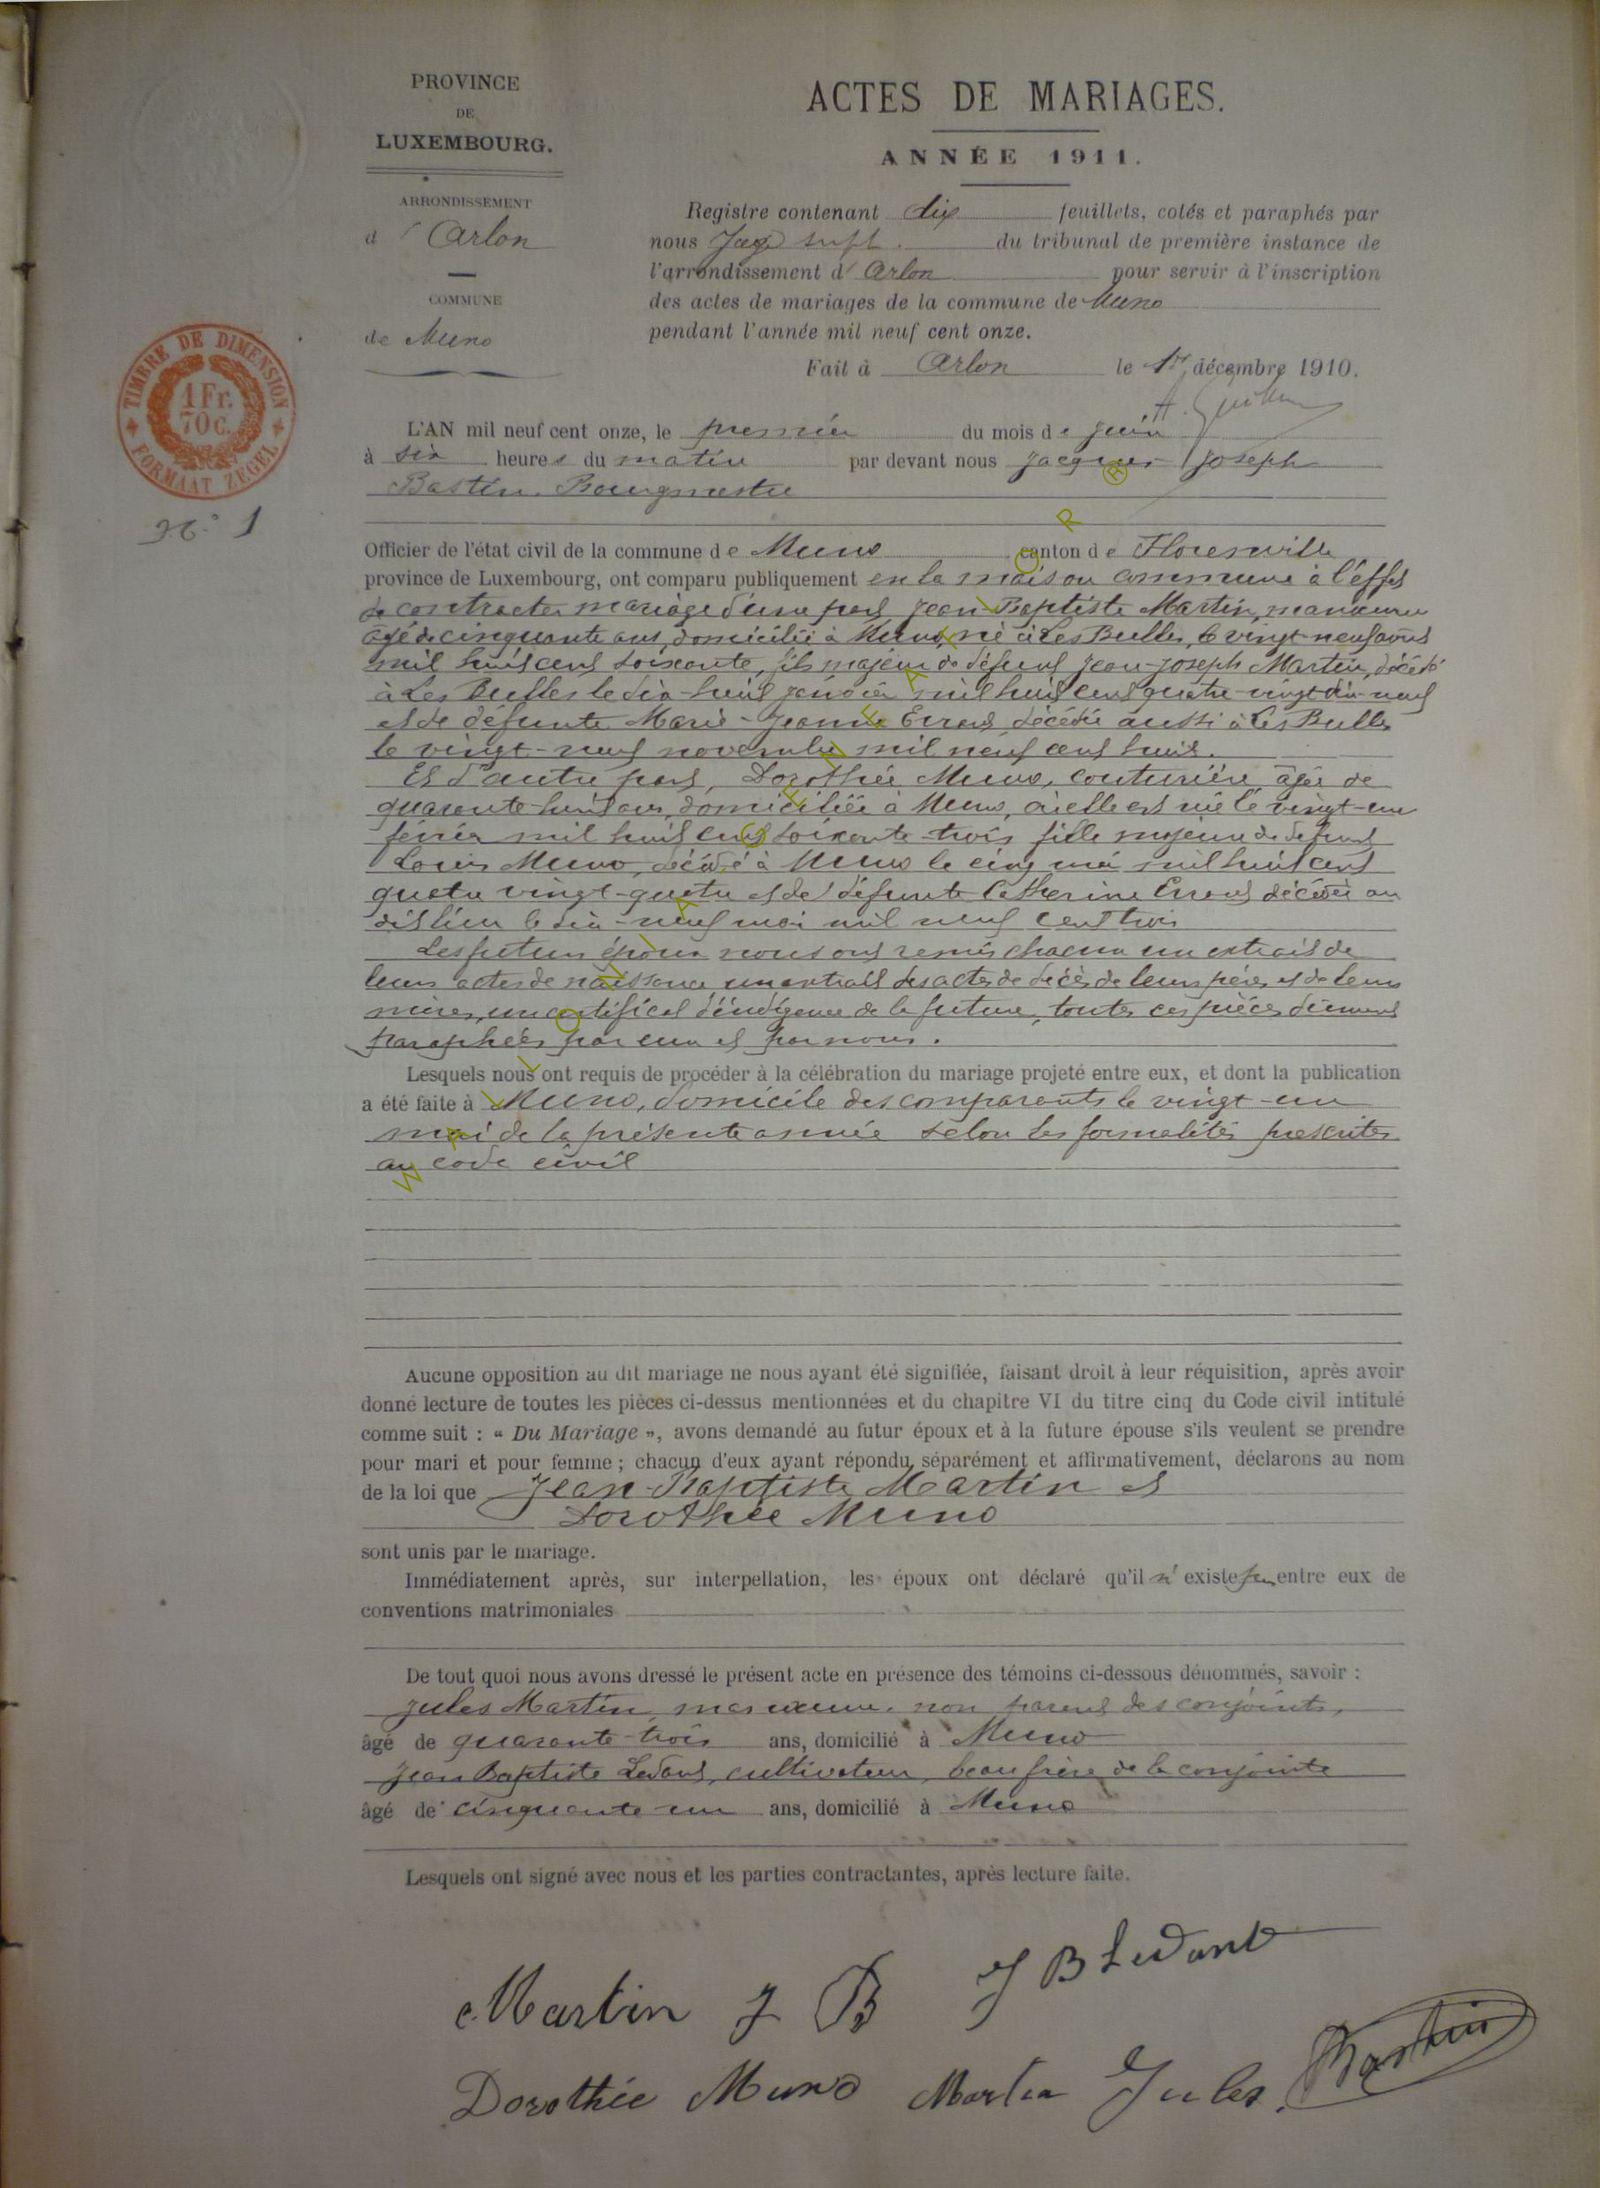 PROVINCE
DE
LUXEMBOURG.
ARRONDISSEMENT
d' Arlon
COMMUNE
de Muno
TIMBRE DE DIMENSION
1 Fr.
70 c.
FORMAAT ZEGEL
N° 1
ACTES DE MARIAGES.
ANNÉE 1911.
Registre contenant dix feuillets, cotés et paraphés par
nous Juge supl. du tribunal de première instance de
l'arrondissement d' Arlon pour servir à l'inscription
des actes de mariages de la commune de Muno
pendant l'année mil neuf cent onze.
Fait à Arlon le 1er décembre 1910.
L'AN mil neuf cent onze, le premier du mois de juin
à six heures du matin par devant nous Jacques Joseph
Bastin, Bourgmestre
Officier de l'état civil de la commune de Muno canton de Florenville
province de Luxembourg, ont comparu publiquement en la maison commune à l'effet
de contracter mariage d'une part Jean-Baptiste Martin, manœuvre
âgé de cinquante ans, domicilié à Muno, né à Les Bulles, le vingt-neuf août
mil huit cent soixante, fils majeur de défunt Jean-Joseph Martin, décédé
à Les Bulles le dix-huit janvier mil huit cent quatre-vingt dix-neuf
et de défunte Marie-Jeanne Errens, décédée aussi à Les Bulles
le vingt-neuf novembre mil neuf cent huit.
Et d'autre part, Dorothée Muno, couturière, âgée de
quarante-huit ans, domiciliée à Muno, où elle est née le vingt-un
février mil huit cent soixante-trois, fille majeure de défunt
Louis Muno, décédé à Muno le cinq mai mil huit cent
quatre vingt-quatre et de défunte Catherine Errens décédée au
dit lieu le dix-neuf mai mil neuf cent trois
Les futurs époux nous ont remis chacun un extrait de
leurs actes de naissance, un extrait des actes de décès de leurs pères et de leurs
mères, un certificat d'indigence de la future, toutes ces pièces dûment
paraphées par eux et par nous.
Lesquels nous ont requis de procéder à la célébration du mariage projeté entre eux, et dont la publication
a été faite à Muno, domicile des comparants le vingt-un
mai de la présente année selon les formalités prescrites
au code civil
Aucune opposition au dit mariage ne nous ayant été signifiée, faisant droit à leur réquisition, après avoir
donné lecture de toutes les pièces ci-dessus mentionnées et du chapitre VI du titre cinq du Code civil intitulé
comme suit : « Du Mariage », avons demandé au futur époux et à la future épouse s'ils veulent se prendre
pour mari et pour femme ; chacun d'eux ayant répondu séparément et affirmativement, déclarons au nom
de la loi que Jean-Baptiste Martin et
Dorothée Muno
sont unis par le mariage.
Immédiatement après, sur interpellation, les époux ont déclaré qu'il n'existe pas entre eux de
conventions matrimoniales
De tout quoi nous avons dressé le présent acte en présence des témoins ci-dessous dénommés, savoir :
Jules Martin, manœuvre, non parent des conjoints,
âgé de quarante-trois ans, domicilié à Muno
Jean Baptiste Ledant, cultivateur, beau frère de la conjointe
âgé de cinquante un ans, domicilié à Muno
Lesquels ont signé avec nous et les parties contractantes, après lecture faite.
Martin J B J B Ledant
Dorothée Muno Martin Jules Bastin
WALLONIA GENEALOR ®